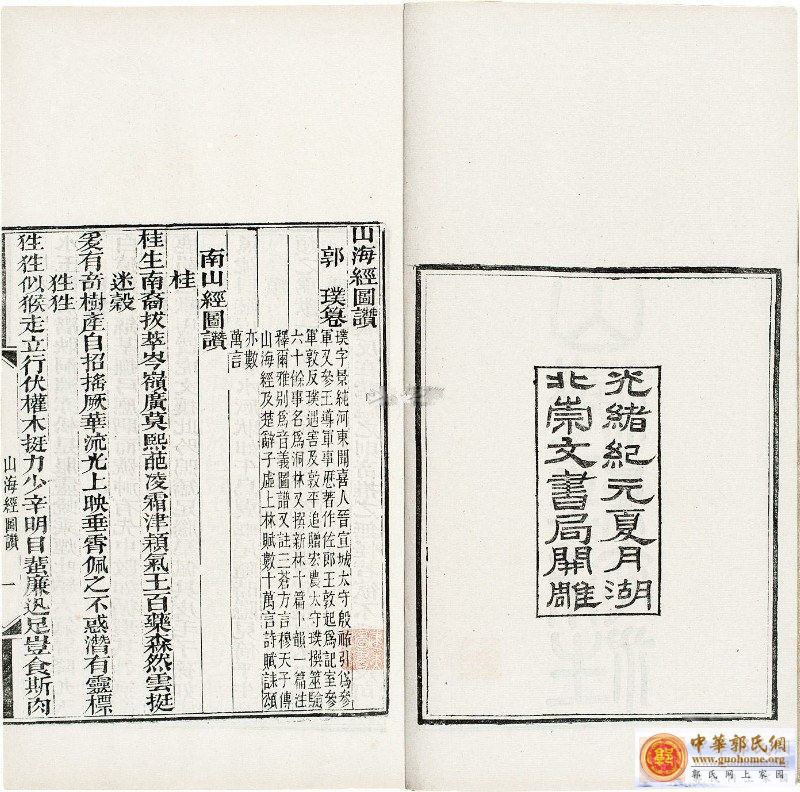 光緒紀元夏月湖
北崇文書局開雕
山海經圖讚
郭 璞
璞字景純河東聞喜人晉宣城太守殷祐引為參
軍又參王導軍事歷著作佐郎王敦起為記室參
軍敦反璞遇害及敦平追贈宏農太守璞撰筮驗
六十餘事名為洞林又撰新林十篇卜韻一篇注
釋爾雅別為音義圖譜又註三蒼方言穆天子傳
山海經及楚辭子虛上林賦數十萬言詩賦誄頌
亦數
萬言
南山經圖讚
桂
桂生南裔拔萃岑嶺廣莫熙葩凌霜津穎氣王百藥森然雲挺
迷穀
爰有奇樹產自招搖厥華流光上映垂霄佩之不惑潛有靈標
狌狌
狌狌似猴走立行伏櫰木挺力少辛明目蜚廉迅足豈食斯肉
山海經圖讚
一
中華郭氏網
www.guohome.org
郭氏网上家园